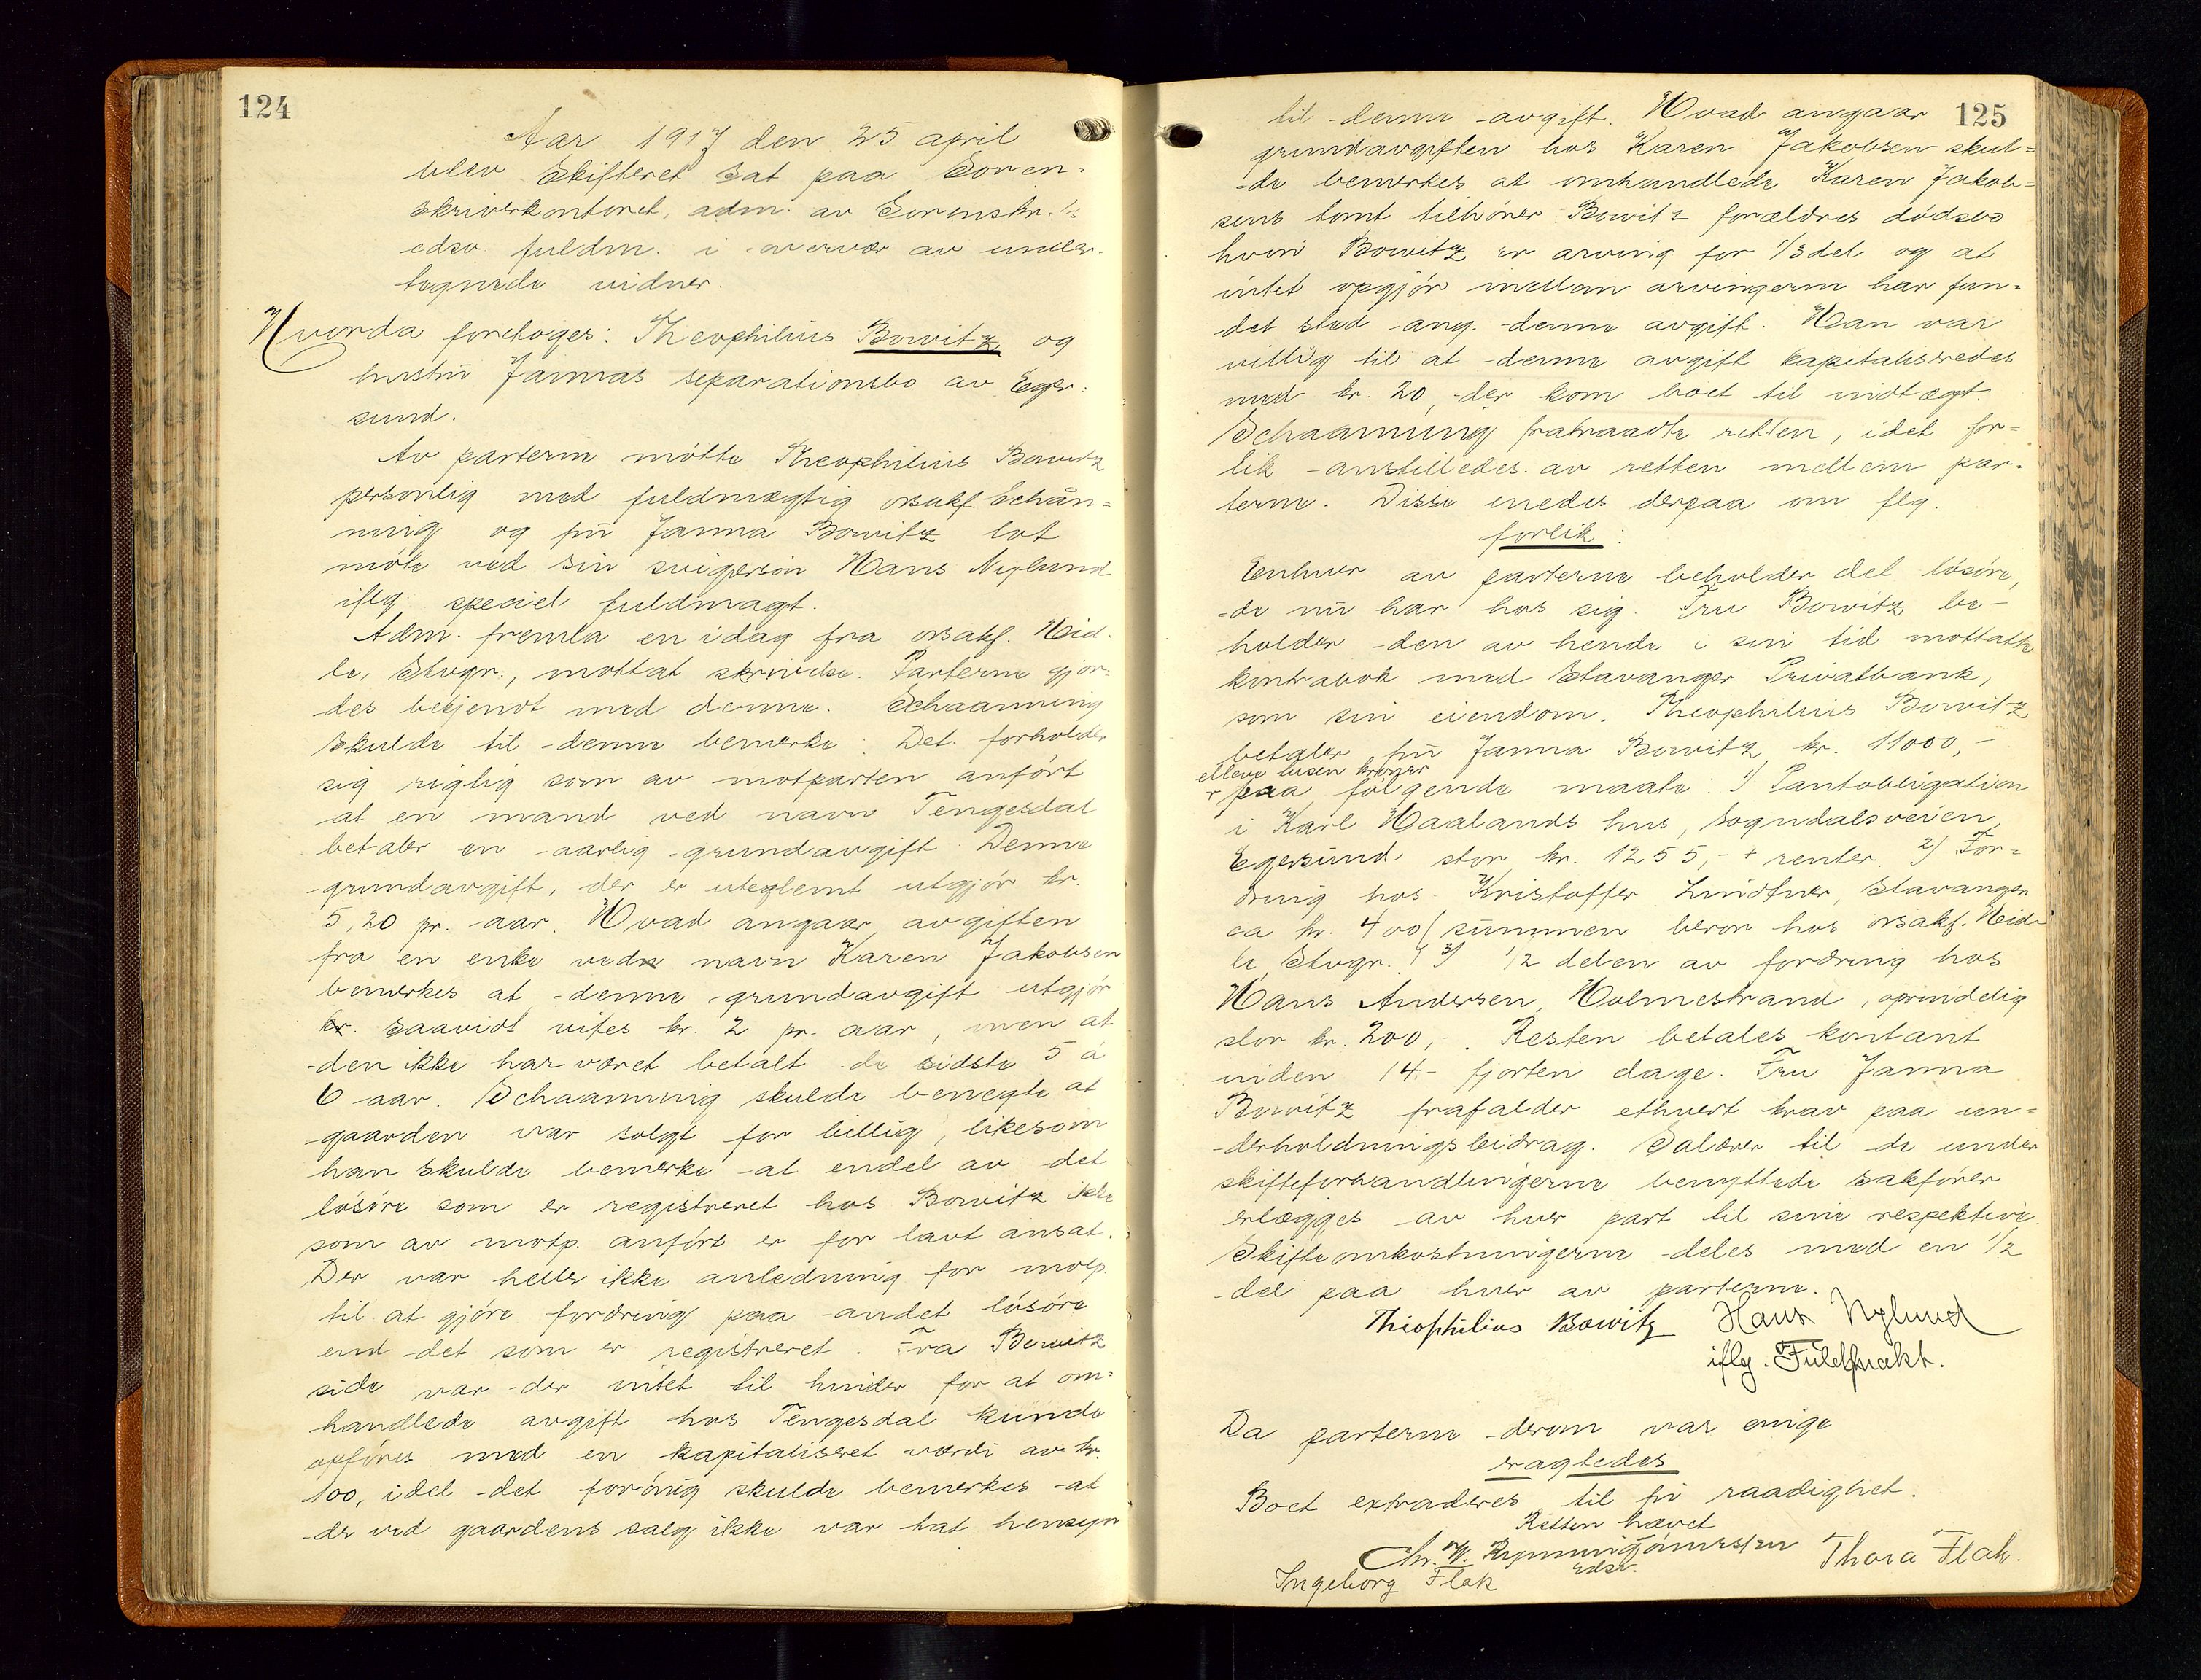 124
Aar 1917 den 25 april
blev Skifteret sat paa Soren-
skriverkontoret, adm. av Sorenskr.s
edsv. fuldm. i overvær av under-
tegnede vidner.
Hvorda foretoges: Theophilius Bowitz og
hustru Jannas separationsbo av Eger-
sund.
Av parterne mötte Theophilius Bowitz
personlig med fuldmægtig orsakf. Schån-
ning og fru Janna Bowitz lot
möte ved sin svigersön Hans Nylund
iflg. speciel fuldmagt.
Adm. fremla en idag fra orsakf. Heid-
le, Stvgr., mottat skrivelse. Parterne gjor-
des bekjendt med denne. Schaanning
skulde til denne bemerke: Det forholder
sig rigtig som av motparten anfört
at en mand ved navn Tengesdal
betaler en aarlig grundavgift. Denne
grundavgift, der er uteglemt utgjör kr.
5,20 pr. aar. Hvad angaar avgiften
fra en enke ved navn Karen Jakobsen
bemerkes at denne grundavgift utgjör
kr. saavidt vites kr. 2 pr. aar, men at
den ikke har været betalt de sidste 5 á
6 aar. Schaanning skulde benegte at
gaarden var solgt for billig, likesom
han skulde bemerke at endel av det
lösöre som er registreret hos Bowitz ikke
som av motp. anfört er for lavt ansat.
Der var heller ikke anledning for motp.
til at gjöre fordring paa andet lösöre
end det som er registreret. Fra Bowitz
side var der intet til hinder for at om-
handlede avgift hos Tengesdal kunde
opföres med en kapitaliseret værdi av kr.
100, idet det forövrig skulde bemerkes at
der ved gaardens salg ikke var tat hensyn
125
til denne avgift. Hvad angaar
grundavgiften hos Karen Jakobsen skul-
de bemerkes at omhandlede Karen Jakob-
sens tomt tilhörer Bowitz forældres dödsbo
hvori Bowitz er arving for 1/3 del og at
intet opgjör mellem arvingerne har fun-
det sted ang. denne avgift. Han var
villig til at denne avgift kapitaliseredes
med kr. 20, der kom boet til indtægt.
Schaanning fratraadte retten, idet for-
lik anstilledes av retten mellem par-
terne. Disse enedes derpaa om flg.
forlik:
Enhver av parterne beholder det lösöre,
de nu har hos sig. Fru Bowitz be-
holder den av hende i sin tid mottatte
kontrabok med Stavanger Privatbank,
som sin eiendom. Theophilius Bowitz
betaler fru Janna Bowitz kr. 11000,-
elleve tusen kroner
paa fölgende maate: 1) Pantobligation
i Karl Haalands hus, Sogndalsveien,
Egersund, stor kr. 1255,- + renter. 2) For-
dring hos Kristoffer Lindtner, Stavanger
ca kr. 400 (summen beror hos orsakf. Heid-
le, Stvgr.) 3) 1/2 delen av fordring hos
Hans Andersen, Holmestrand, oprindelig
stor kr. 200,-. Resten betales kontant
inden 14 - fjorten dage. Fru Janna
Bowitz frafalder ethvert krav paa un-
derholdningsbidrag. Salærer til de under
skifteforhandlingerne benyttede sakförer
erlægges av hver part til sine respektive.
Skifteomkostningerne deles med en 1/2
del paa hver av parterne.
Theophilius Bowitz Hans Nylund
iflg. Fuldmakt.
Da parterne derom var enige
eragtedes
Boet extraderes til fri raadighet.
Retten hævet
Chr.
Thora Flak.
Edsv.
Ingeborg Flak